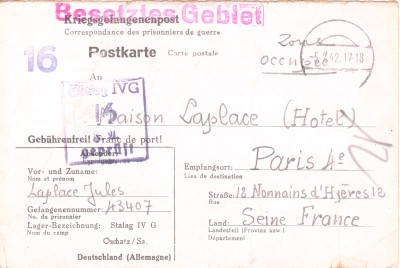 Besetztes Gebiet
Kriegsgefangenenpost
Correspondance des prisonniers de guerre
16
Postkarte Carte postale
Zone
occupée
-5.2.42.17-18
An
Stalag IVG
16
geprüft
Maison Laplace (Hotel)
Gebührenfrei! Franc de port!
Absender:
Vor- und Zuname:
Nom et prénom
Laplace Jules
Gefangenennummer: 43407
No. du prisonnier
Lager-Bezeichnung: Stalag IV G
Nom du camp
Oschatz/Sa.
Deutschland (Allemagne)
Empfangsort: Paris 4e
Lieu de destination
Straße: 12 Nonnains d'Hyères 12
Rue
Land: Seine France
Landesteil (Provinz usw.)
Département